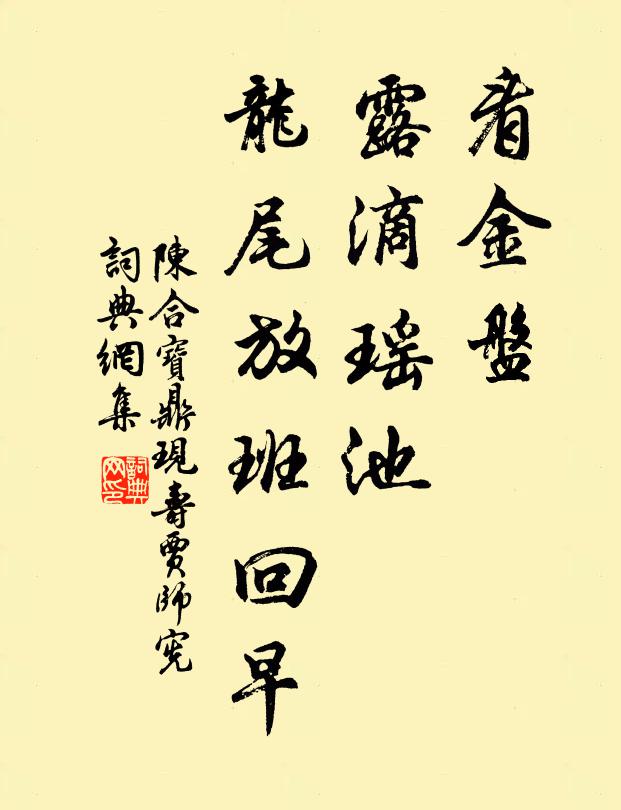 看金盤
露滴瑶池
龍尾放班回早
陳合寶鼎現壽賈師憲
詞典網集
詞典网印